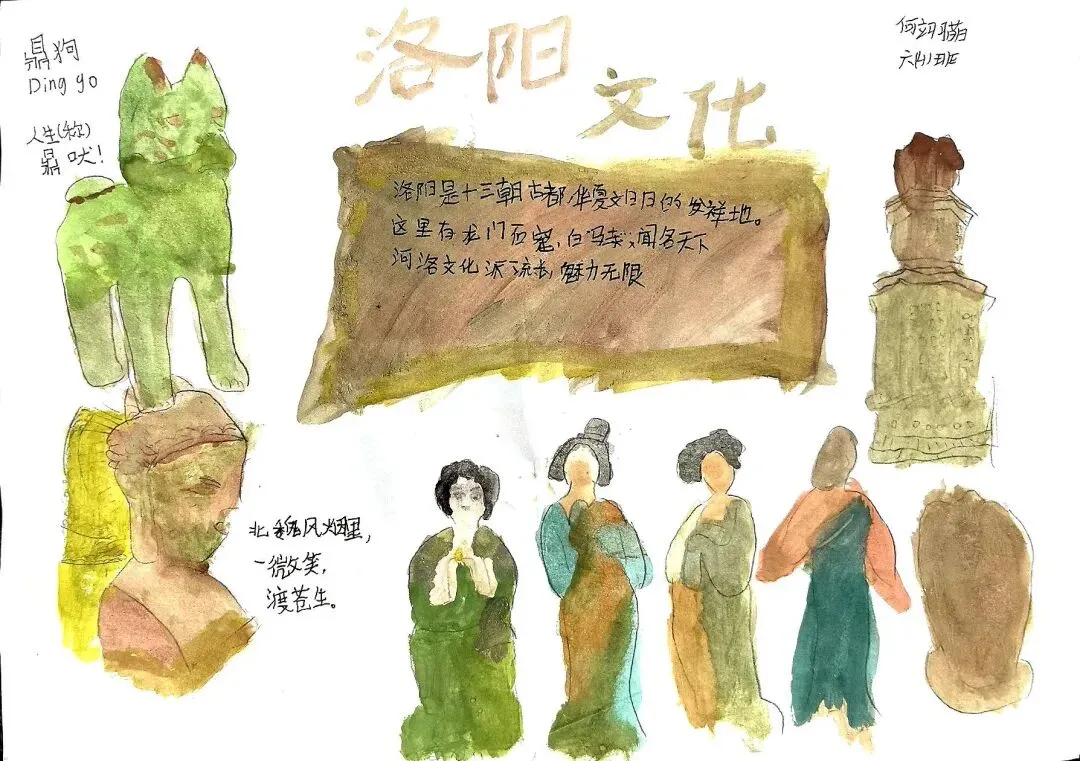 洛阳文化
鼎狗
Ding go
人生(称)
鼎吠!
六(4)班
洛阳是十三朝古都,华夏文明的发祥地。
这里有龙门石窟,白马寺,闻名天下
河洛文化源远流长,魅力无限
北魏风烟里,
一微笑,
渡苍生。